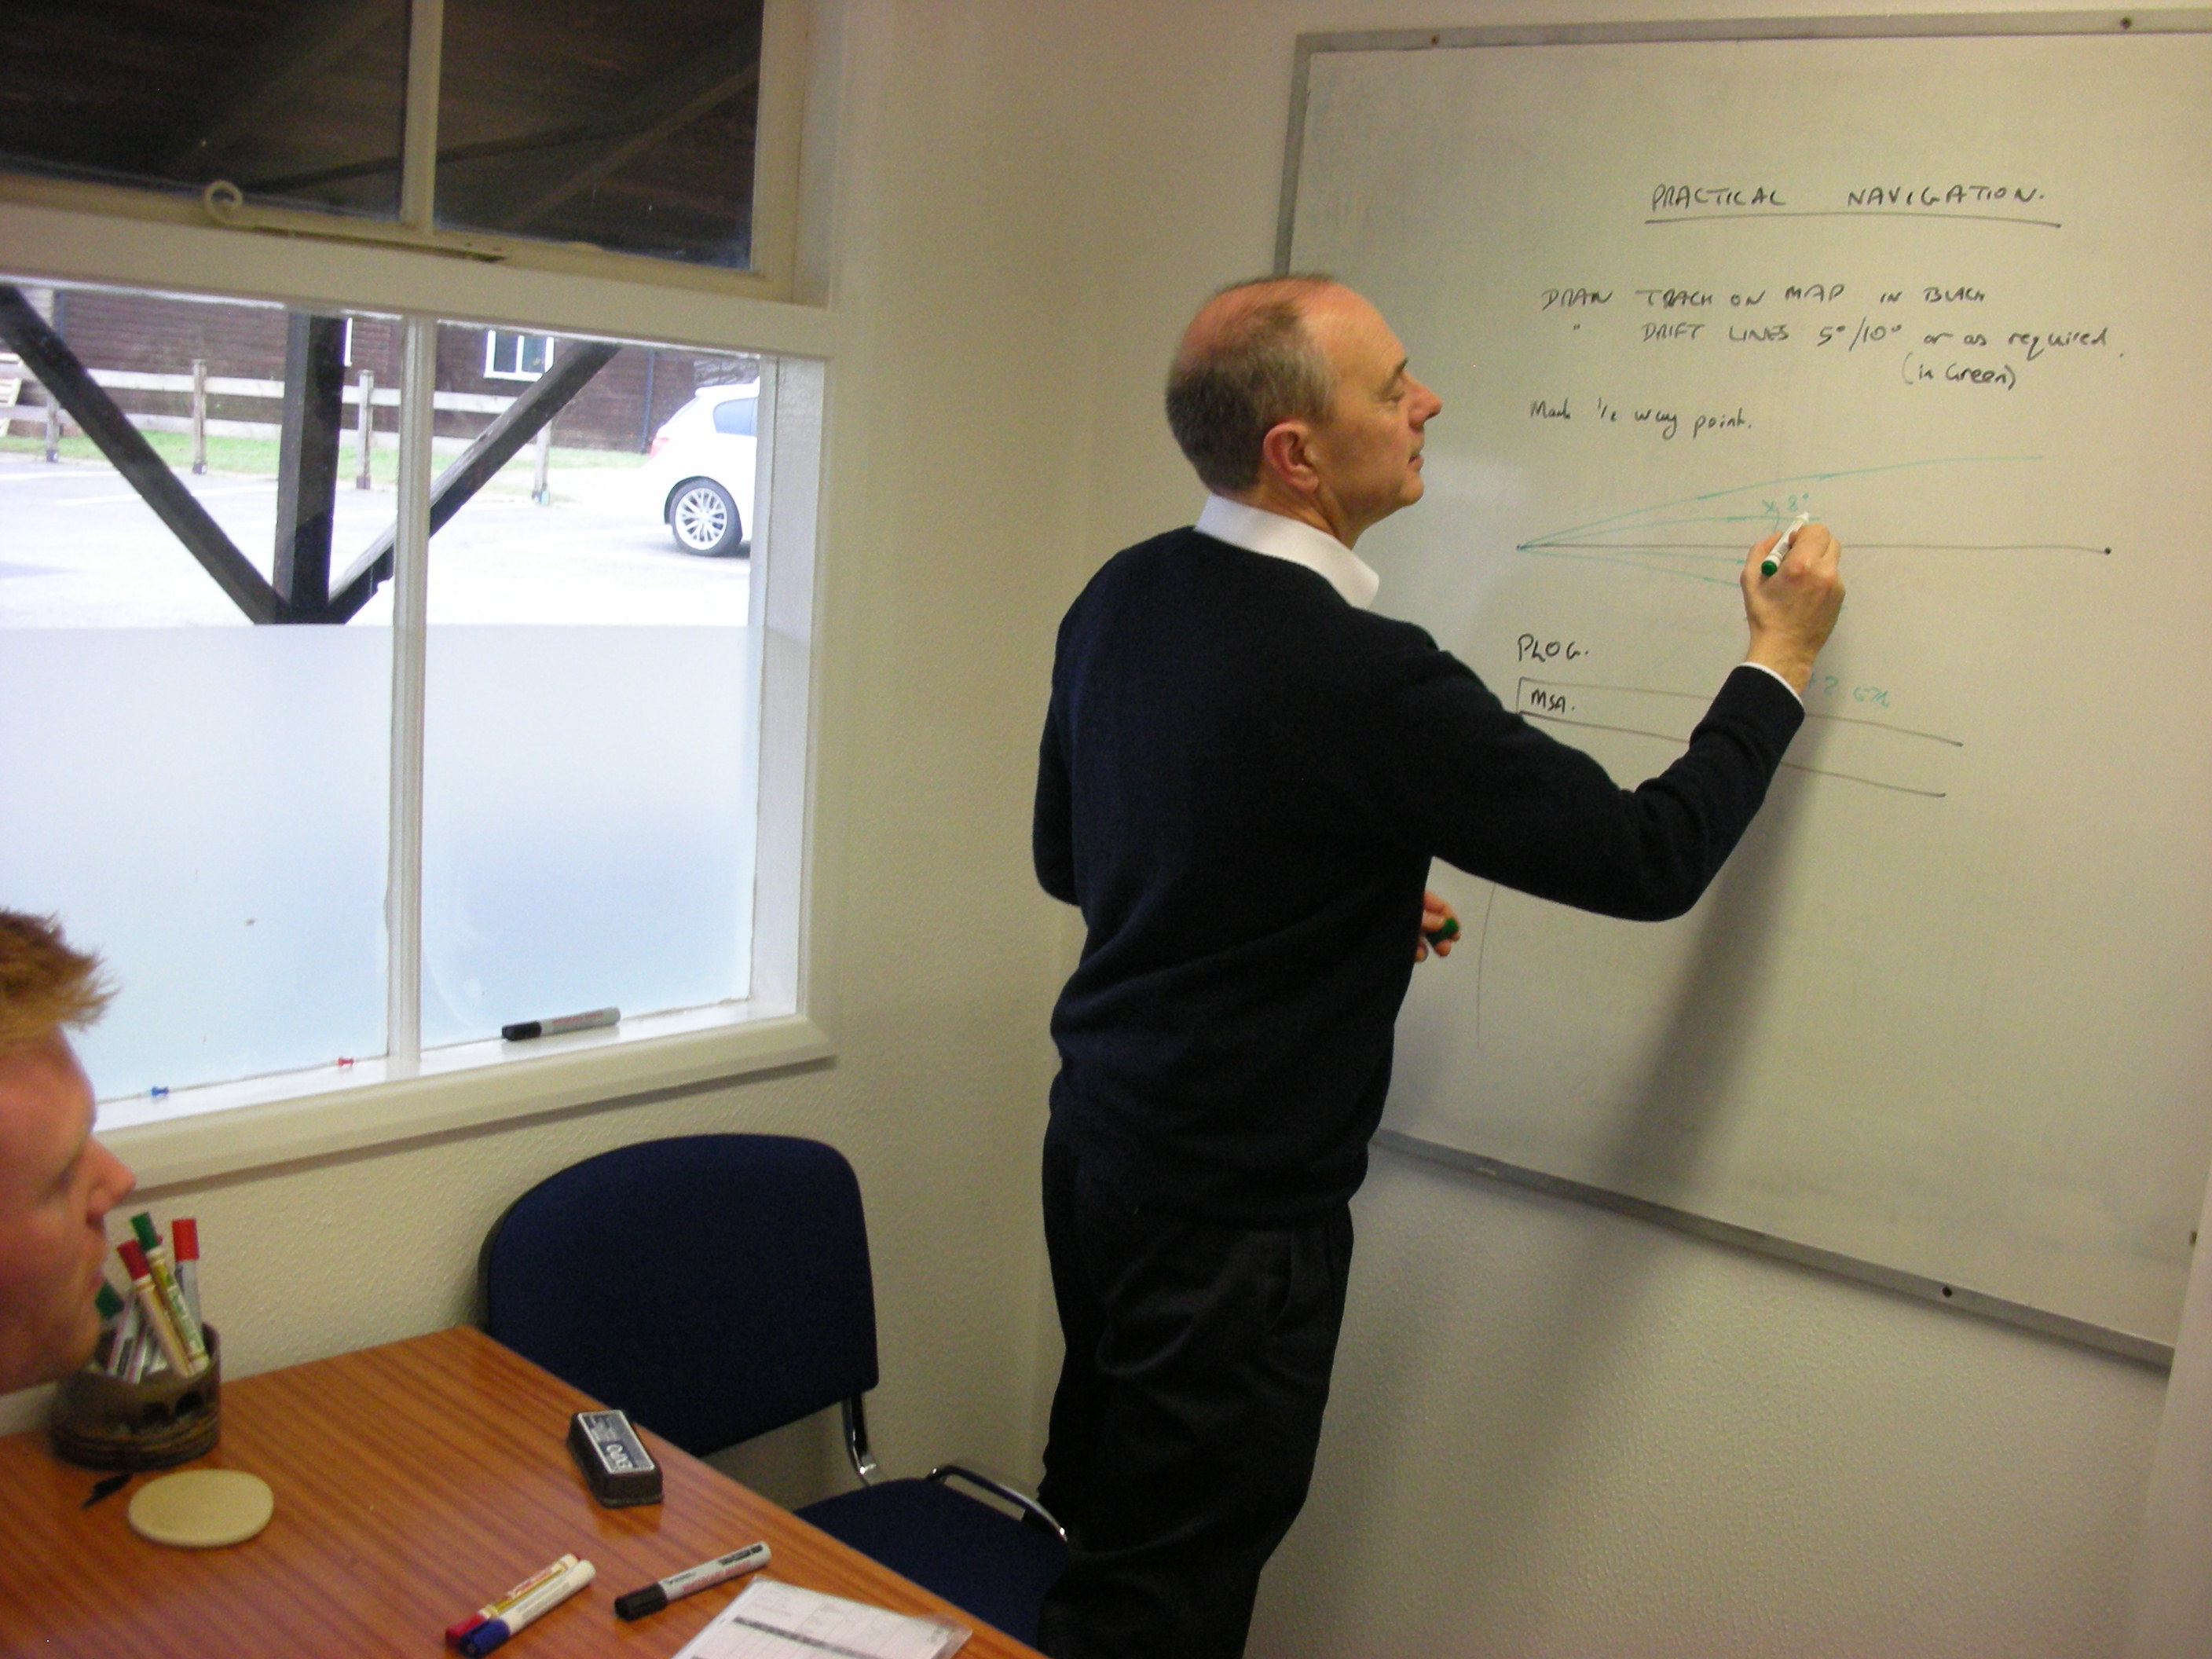 PRACTICAL NAVIGATION.
DRAW TRACK ON MAP IN BLACK
" DRIFT LINES 5°/10° or as required.
(in Green)
Mark 1/2 way point.
x 8°
PLOG.
MSA.